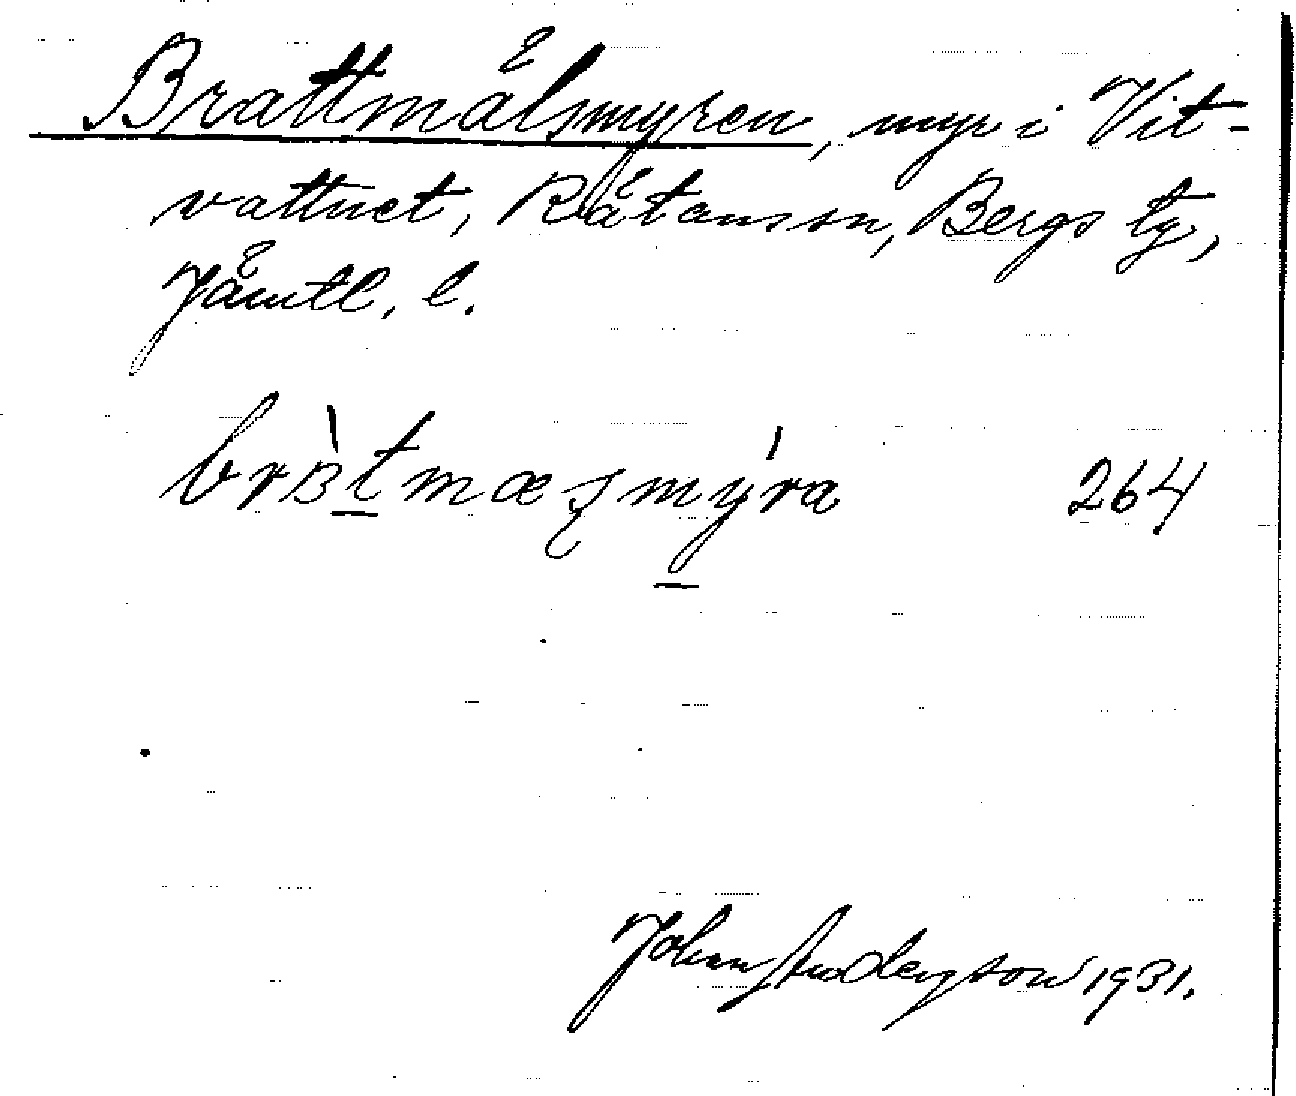 Brattmålsmyren, myr i Vit-
vattnet, Råtans sn, Bergs tg,
Jämtl. l.
brɜ̀t̲mæʂmy̲̍ra 264
John Andersson 1931.